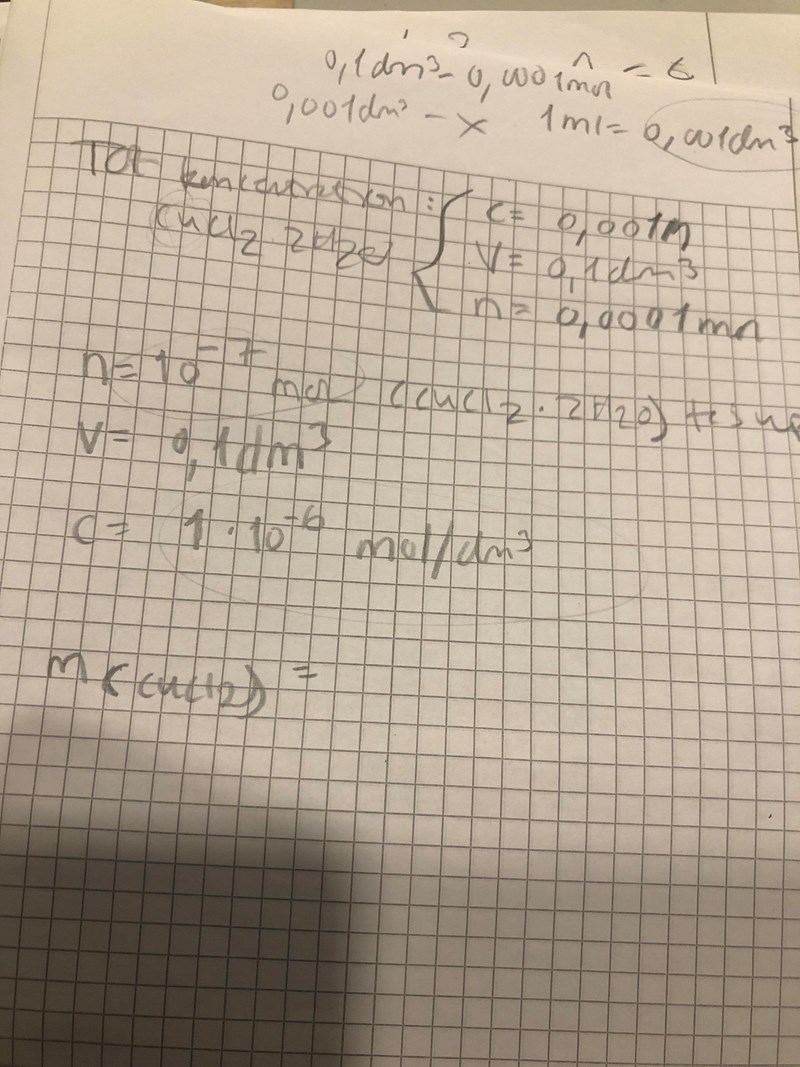 0,1dm³ - 0,0001mol =
0,001dm³ - x 1ml = 0,001dm³
Tot koncentration :
c = 0,001M
CuCl2 · 2H2O
V = 0,1dm³
n = 0,0001mol
n = 10⁻⁷ mol (CuCl2 · 2H2O)
V = 0,1dm³
c = 1 · 10⁻⁶ mol/dm³
m (CuCl2) =